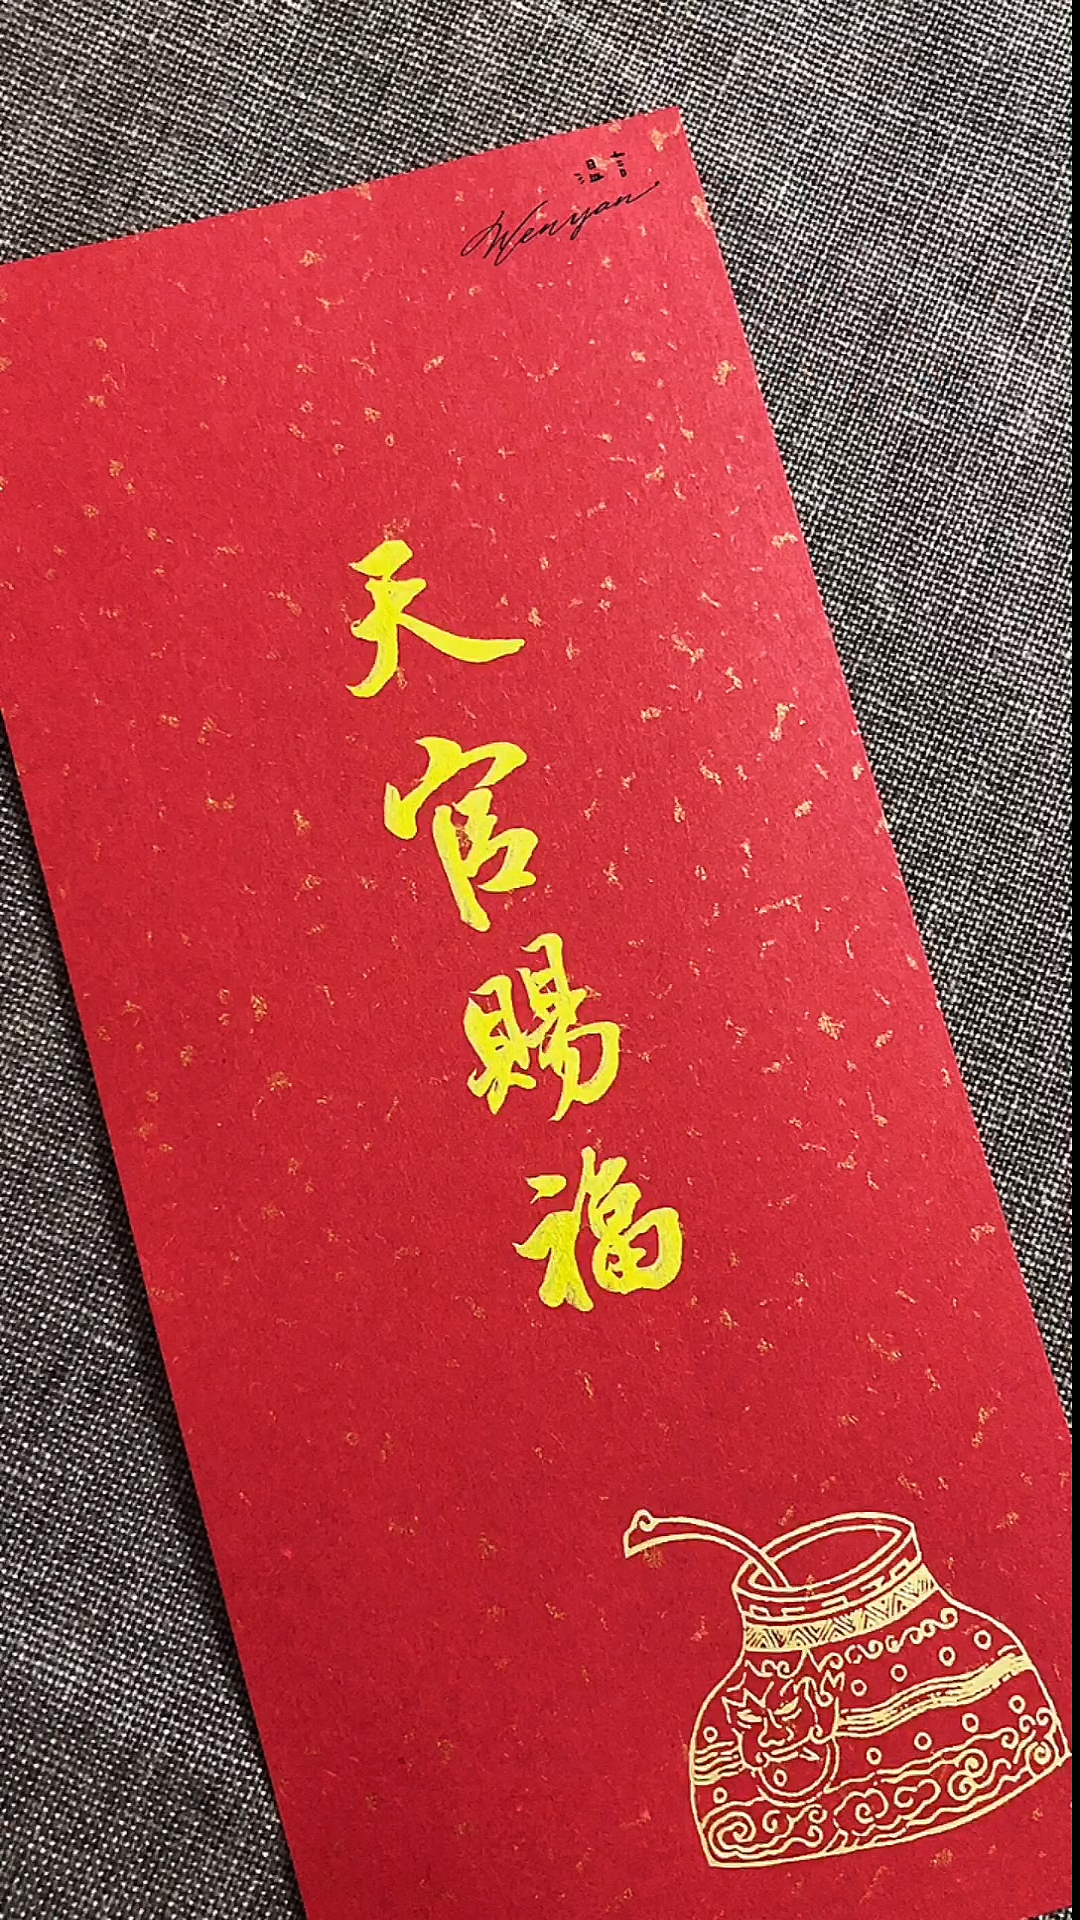 温言
Wenyan
天官賜福